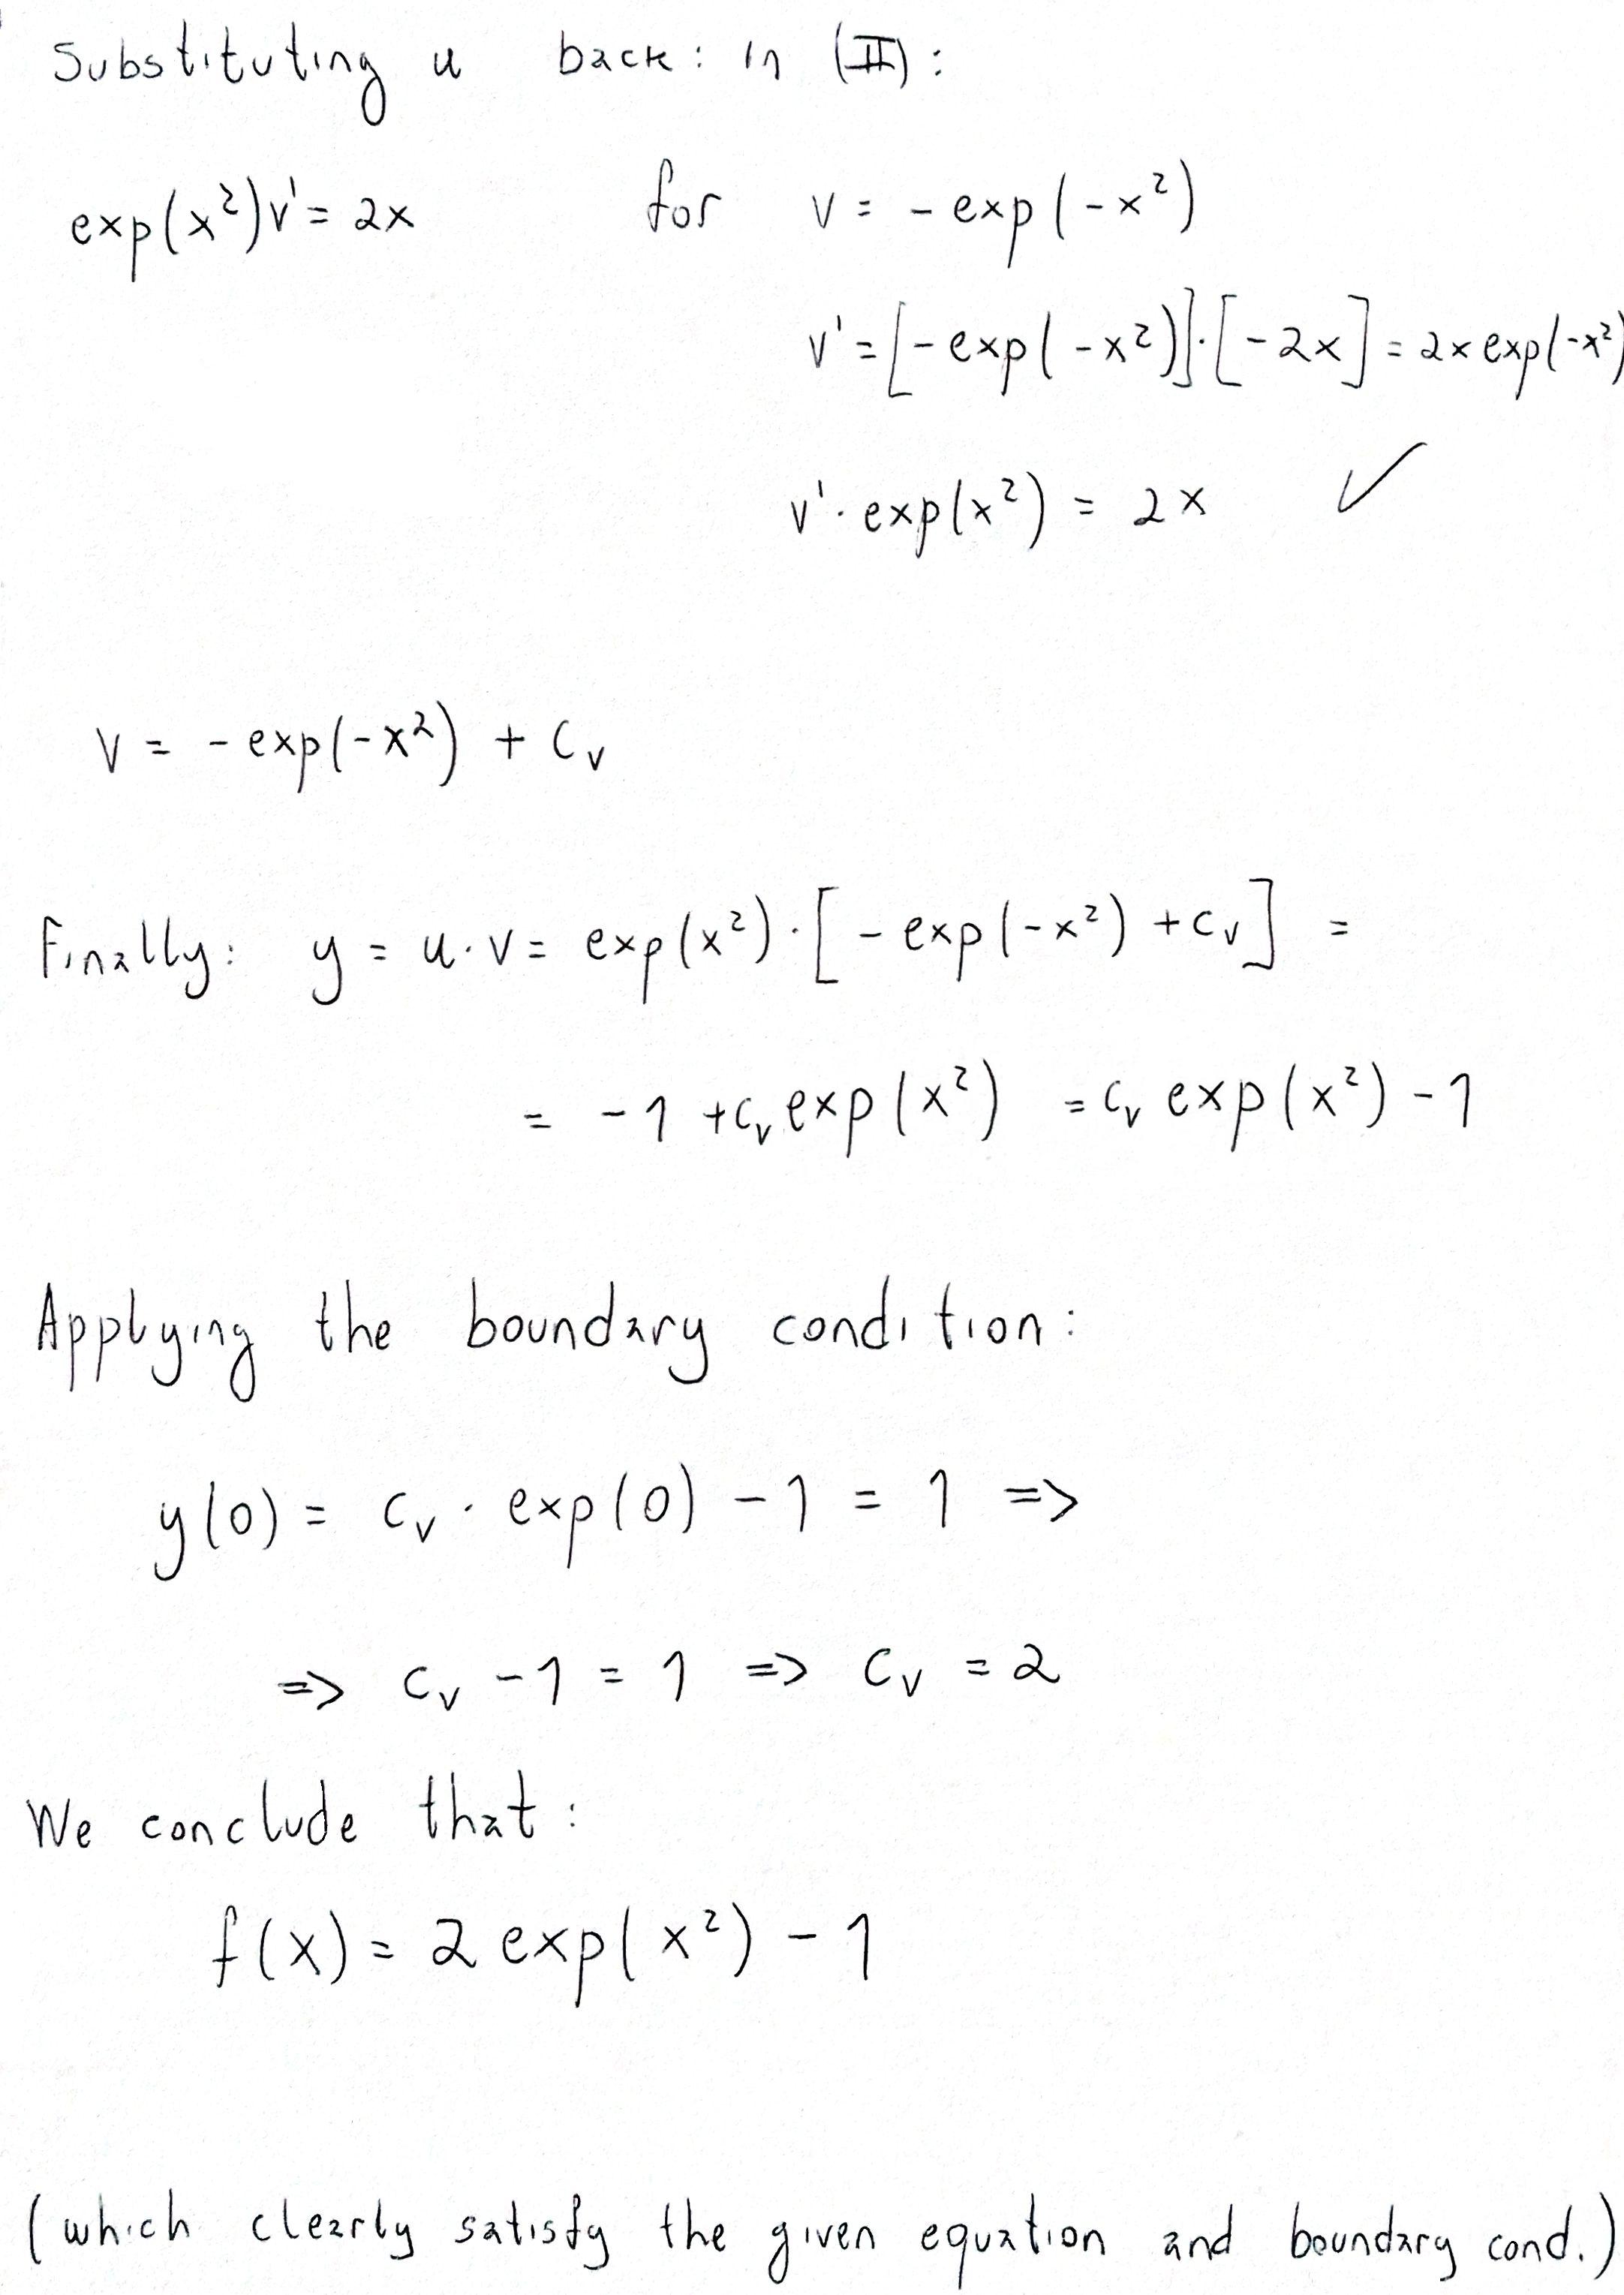 Substituting u back: in (II):
exp(x²)v' = 2x for v = -exp(-x²)
v' = [-exp(-x²)]·[-2x] = 2x exp(-x²)
v'·exp(x²) = 2x ✓
v = -exp(-x²) + Cᵥ
Finally: y = u·v = exp(x²)·[-exp(-x²) + Cᵥ] =
= -1 + Cᵥ exp(x²) = Cᵥ exp(x²) - 1
Applying the boundary condition:
y(0) = Cᵥ · exp(0) - 1 = 1 =>
=> Cᵥ - 1 = 1 => Cᵥ = 2
We conclude that:
f(x) = 2 exp(x²) - 1
(which clearly satisfy the given equation and boundary cond.)